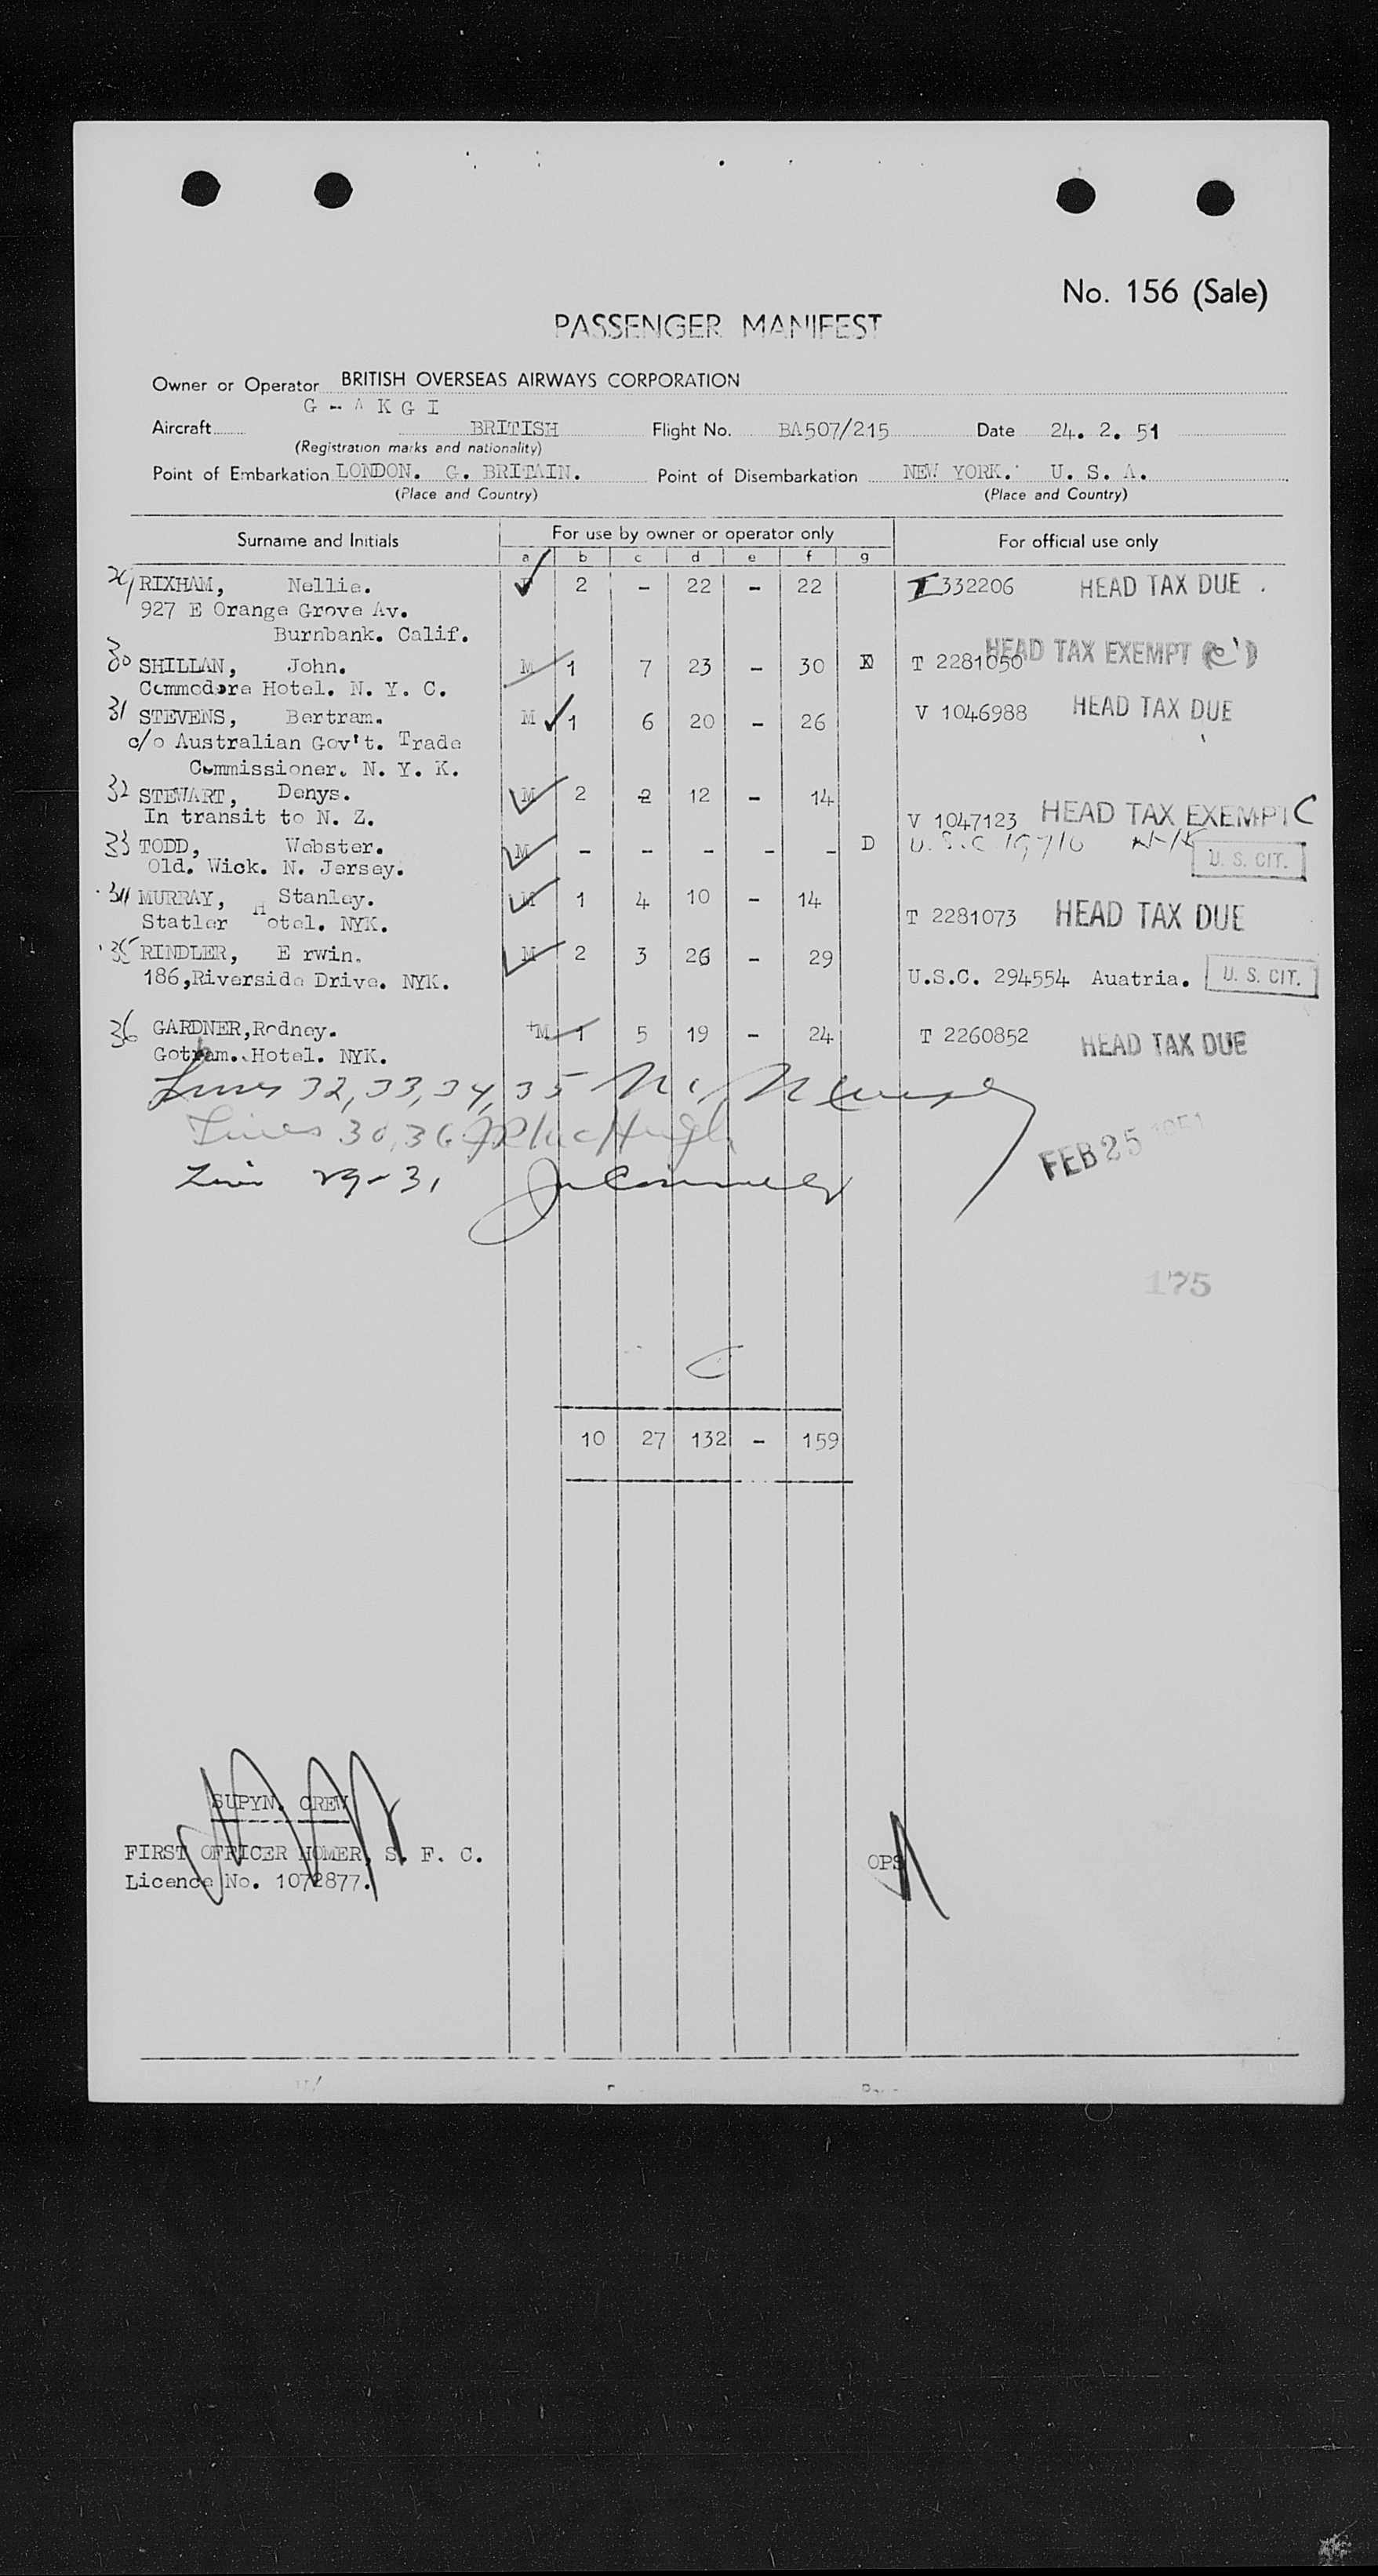 No. 156 (Sale)
PASSENGER MANIFEST
Owner or Operator BRITISH OVERSEAS AIRWAYS CORPORATION
G - A K G I
Aircraft BRITISH Flight No. BA507/215 Date 24. 2. 51
(Registration marks and nationality)
Point of Embarkation LONDON. G. BRITAIN. Point of Disembarkation NEW YORK. U. S. A.
(Place and Country) (Place and Country)
Surname and Initials For use by owner or operator only For official use only
a b c d e f g
29 RIXHAM, Nellie. 2 - 22 - 22 I 332206 HEAD TAX DUE .
927 E Orange Grove Av.
Burnbank. Calif.
30 SHILLAN, John. M 1 7 23 - 30 T 2281050 HEAD TAX EXEMPT
Commodore Hotel. N. Y. C.
31 STEVENS, Bertram. M 1 6 20 - 26 V 1046988 HEAD TAX DUE
c/o Australian Gov't. Trade
Commissioner. N. Y. K.
32 STEWART, Denys. M 2 2 12 - 14
In transit to N. Z. V 1047123 HEAD TAX EXEMPT C
33 TODD, Webster. M - - - - - D U.S.C 19716 U. S. CIT.
Old. Wick. N. Jersey.
34 MURRAY, Stanley. M 1 4 10 - 14
Statler Hotel. NYK. T 2281073 HEAD TAX DUE
35 RINDLER, E rwin. M 2 3 26 - 29
186,Riverside Drive. NYK. U.S.C. 294554 Auatria. U. S. CIT.
36 GARDNER,Rodney. +M 1 5 19 - 24 T 2260852 HEAD TAX DUE
Gotham. Hotel. NYK.
Lines 32, 33, 34, 35
Lines 30, 36
Line 29-31
FEB 25 1951
175
10 27 132 - 159
SUPYN. CREW
FIRST OFFICER HOMER, S. F. C.
Licence No. 1072877.
OPS